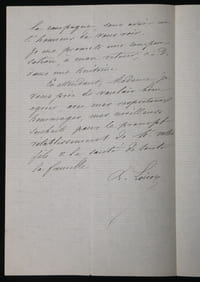 la campagne sans avoir eu
l'honneur de vous voir.
Je me promets une compen-
sation, à mon retour, à D.
sans me
En attendant, Madame, je
vous prie de vouloir bien
agréer avec mes respectueux
hommages, mes meilleurs
souhaits pour le prompt
rétablissement de votre
fils & la santé de toute
la famille.